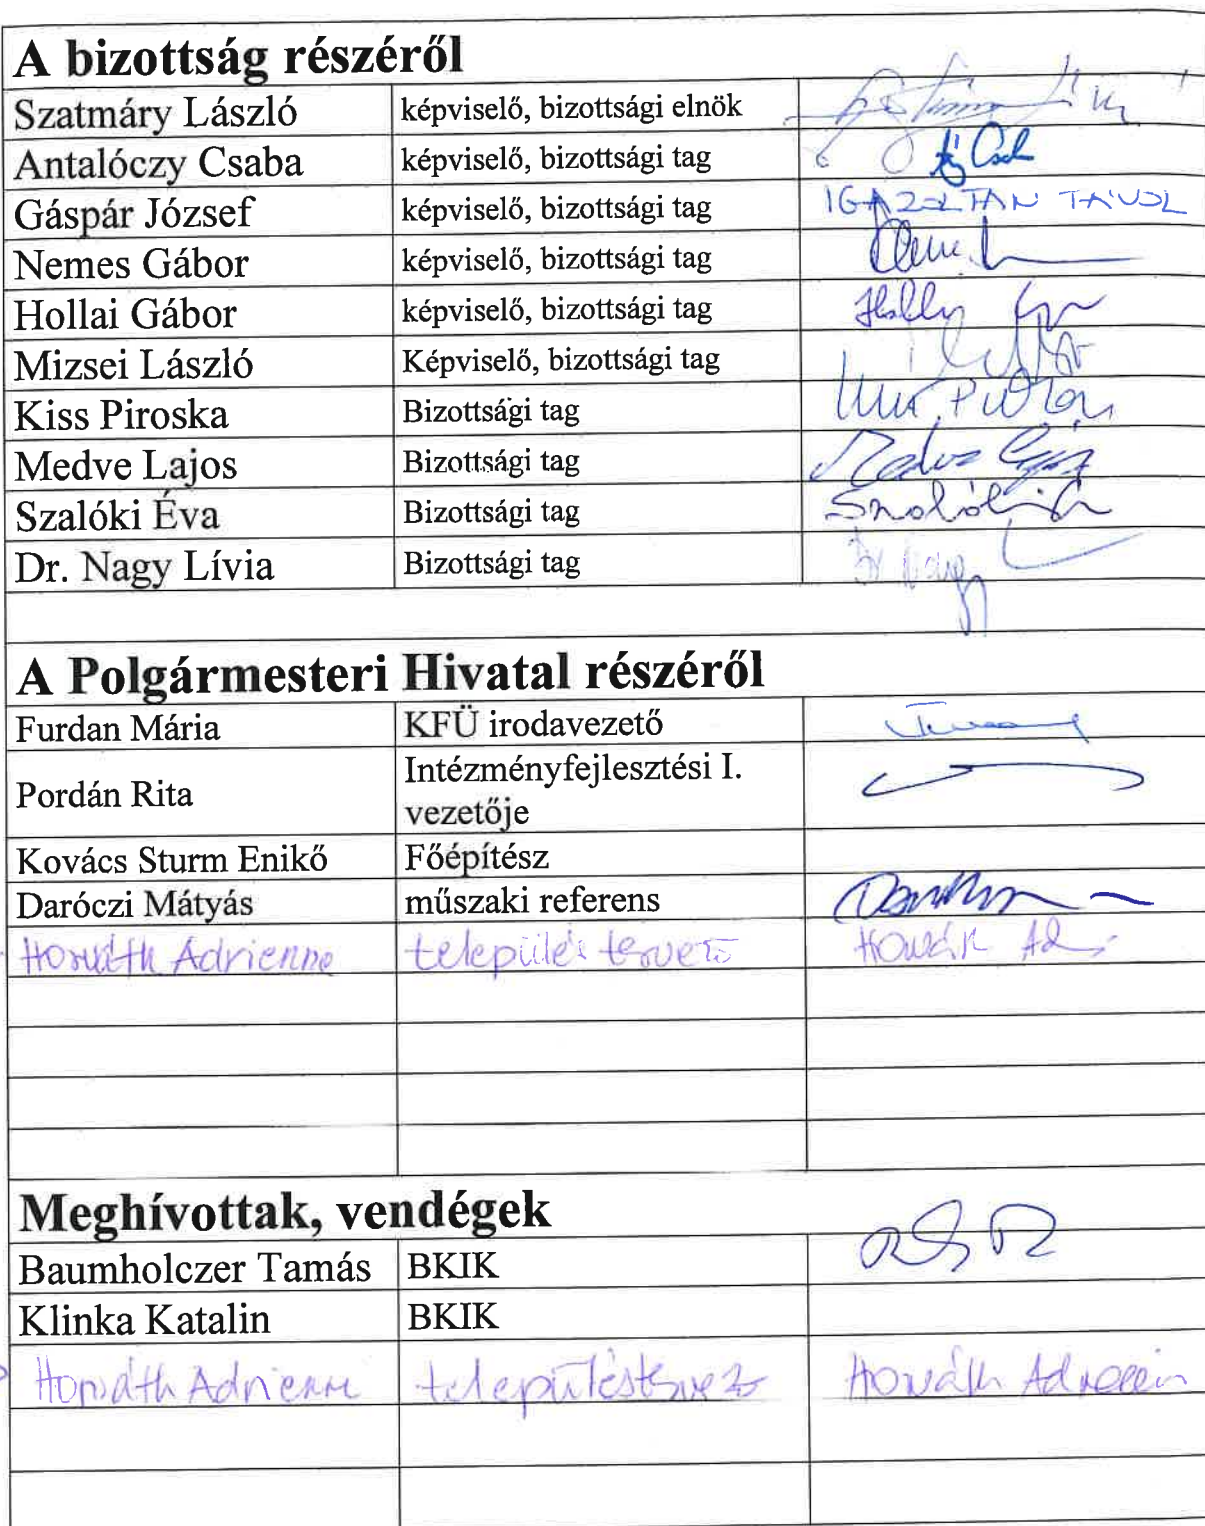 A bizottság részéről
Szatmáry László képviselő, bizottsági elnök
Antalóczy Csaba képviselő, bizottsági tag
Gáspár József képviselő, bizottsági tag IGAZOLTAN TÁVOL
Nemes Gábor képviselő, bizottsági tag
Hollai Gábor képviselő, bizottsági tag
Mizsei László Képviselő, bizottsági tag
Kiss Piroska Bizottsági tag
Medve Lajos Bizottsági tag
Szalóki Éva Bizottsági tag
Dr. Nagy Lívia Bizottsági tag Dr Nagy
A Polgármesteri Hivatal részéről
Furdan Mária KFÜ irodavezető
Pordán Rita Intézményfejlesztési I.
vezetője
Kovács Sturm Enikő Főépítész
Daróczi Mátyás műszaki referens
Horváth Adrienne település tervező Horváth
Meghívottak, vendégek
Baumholczer Tamás BKIK
Klinka Katalin BKIK
Horváth Adrienne településtervező Horváth